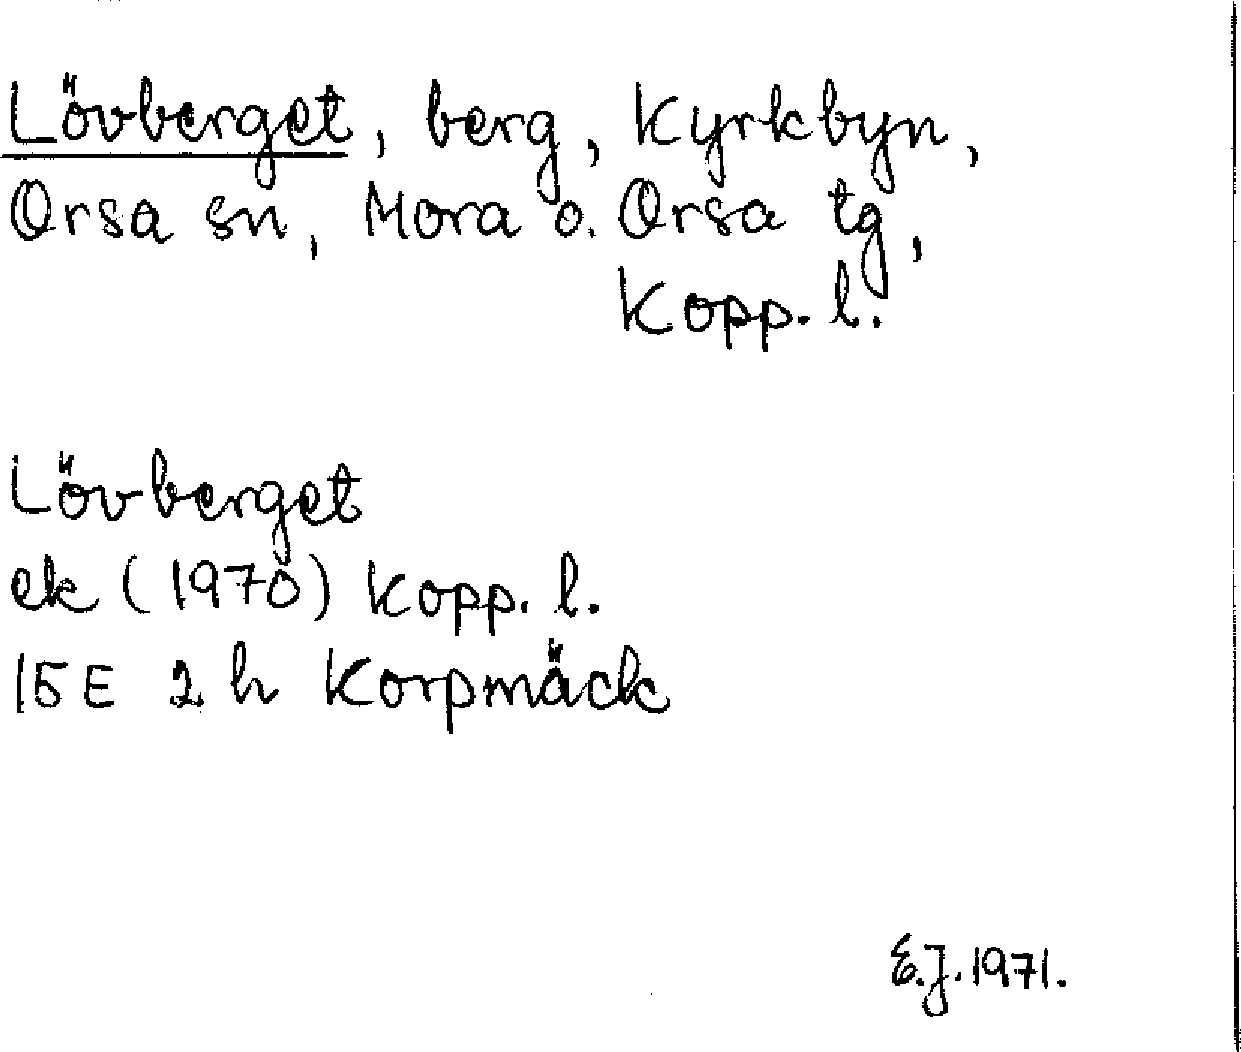 Lövberget, berg, Kyrkbyn,
Orsa sn, Mora o. Orsa tg,
Kopp. l.
Lövberget
ek (1970) Kopp. l.
15 E 2 h Korpmäck
E.J. 1971.